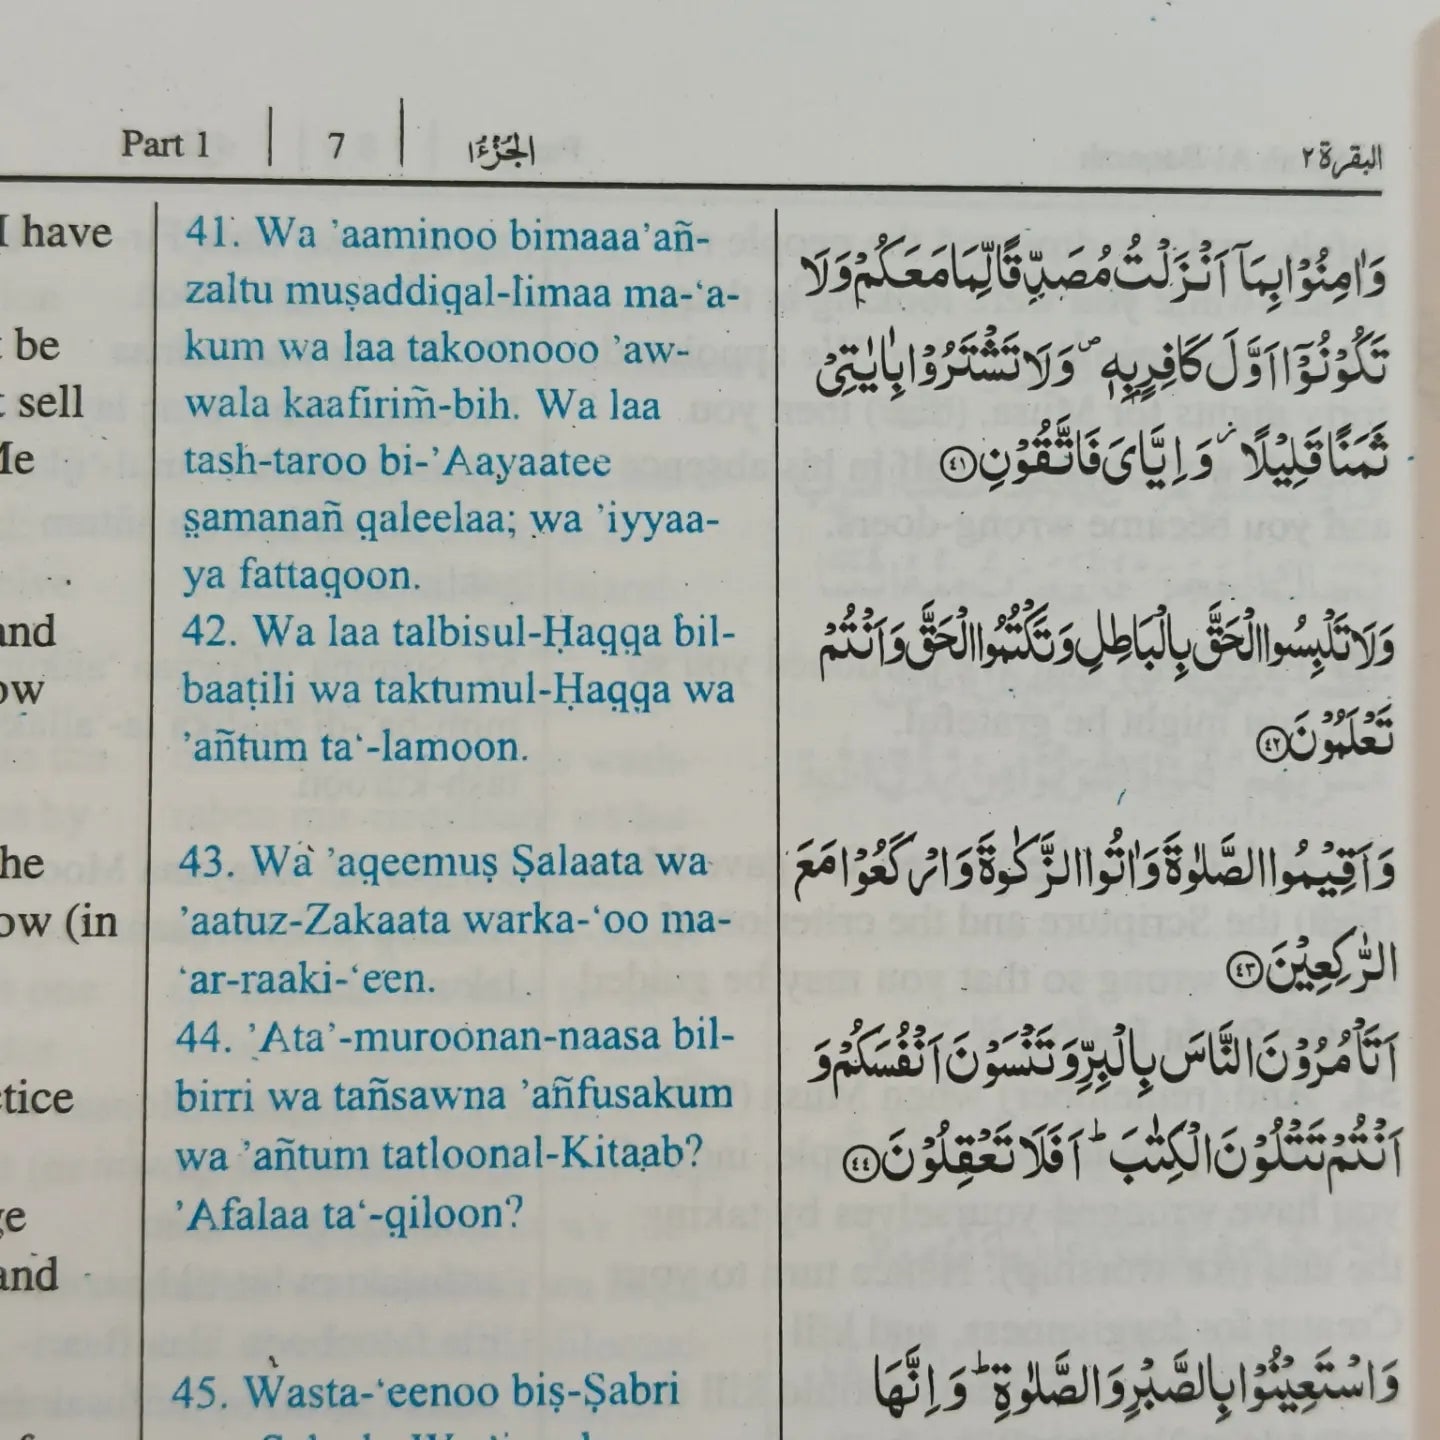 Part 1 | 7 | الجزء ١
البقرة ٢
I have
be
sell
Me
and
ow
he
ow (in
ctice
ge
and
41. Wa ’aaminoo bimaaa’añ-
zaltu muṣaddiqal-limaa ma-‘a-
kum wa laa takoonooo ’aw-
wala kaafirim̃-bih. Wa laa
tash-taroo bi-’Aayaatee
s̱amanañ qaleelaa; wa ’iyyaa-
ya fattaqoon.
42. Wa laa talbisul-Ḥaqqa bil-
baaṭili wa taktumul-Ḥaqqa wa
’añtum ta‘-lamoon.
43. Wa ’aqeemuṣ Ṣalaata wa
’aatuz-Zakaata warka-‘oo ma-
‘ar-raaki-‘een.
44. ’Ata’-muroonan-naasa bil-
birri wa tañsawna ’añfusakum
wa ’añtum tatloonal-Kitaab?
’Afalaa ta‘-qiloon?
45. Wasta-‘eenoo biṣ-Ṣabri
وَاٰمِنُوْا بِمَآ اَنْزَلْتُ مُصَدِّقًا لِّمَا مَعَكُمْ وَلَا
تَكُوْنُوْٓا اَوَّلَ كَافِرٍۭ بِهٖ ۪ وَلَا تَشْتَرُوْا بِاٰيٰتِيْ
ثَمَنًا قَلِيْلًا ۫ وَاِيَّايَ فَاتَّقُوْنِ ﴿٤١﴾
وَلَا تَلْبِسُوا الْحَقَّ بِالْبَاطِلِ وَتَكْتُمُوا الْحَقَّ وَاَنْتُمْ
تَعْلَمُوْنَ ﴿٤٢﴾
وَاَقِيْمُوا الصَّلٰوةَ وَاٰتُوا الزَّكٰوةَ وَارْكَعُوْا مَعَ
الرّٰكِعِيْنَ ﴿٤٣﴾
اَتَاْمُرُوْنَ النَّاسَ بِالْبِرِّ وَتَنْسَوْنَ اَنْفُسَكُمْ وَ
اَنْتُمْ تَتْلُوْنَ الْكِتٰبَ ؕ اَفَلَا تَعْقِلُوْنَ ﴿٤٤﴾
وَاسْتَعِيْنُوْا بِالصَّبْرِ وَالصَّلٰوةِ ؕ وَاِنَّهَا